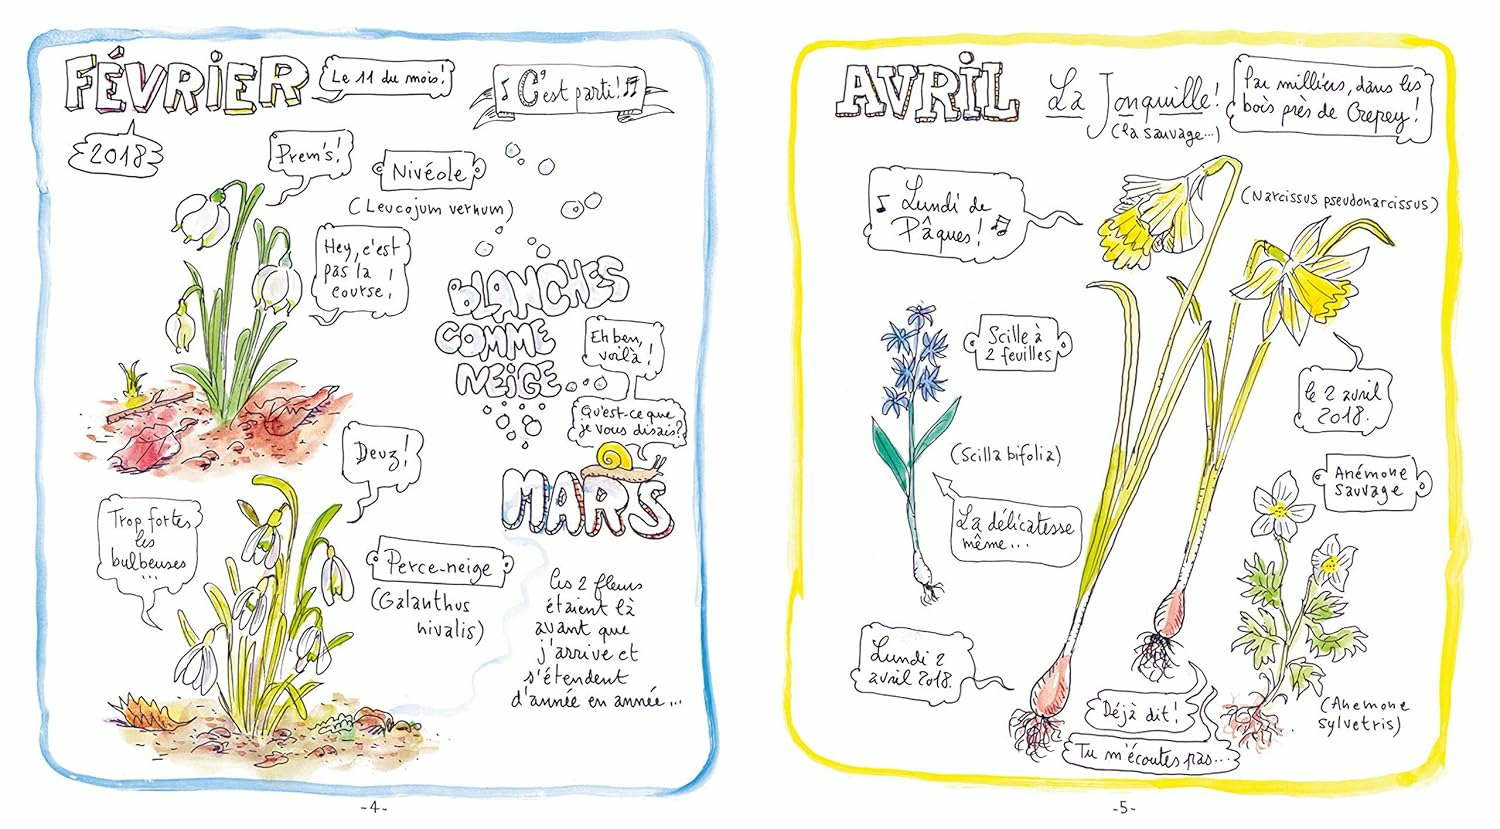 FÉVRIER
Le 11 du mois!
C'est parti!
2018
Prem's!
Nivéole
(Leucojum vernum)
Hey, c'est
pas la
course!
BLANCHES
COMME
NEIGE
Eh ben,
voilà!
Qu'est-ce que
je vous disais?
MARS
Deuz!
Trop fortes
les
bulbeuses
...
Perce-neige
(Galanthus
nivalis)
Ces 2 fleurs
étaient là
avant que
j'arrive et
s'étendent
d'année en année...
-4-
AVRIL
La Jonquille!
(la sauvage...)
Par milliers, dans les
bois près de Crepey!
Lundi de
Pâques!
(Narcissus pseudonarcissus)
Scille à
2 feuilles
le 2 avril
2018.
(Scilla bifolia)
Anémone
sauvage
La délicatesse
même...
Lundi 2
avril 2018.
Déjà dit!
Tu m'écoutes pas...
(Anemone
sylvetris)
-5-